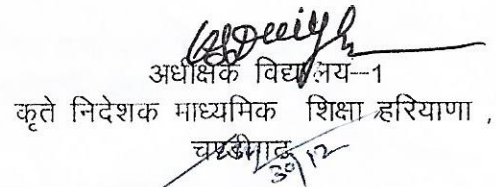 अधीक्षक विद्यालय--1
कृते निदेशक माध्यमिक शिक्षा हरियाणा ,
चण्डीगढ़